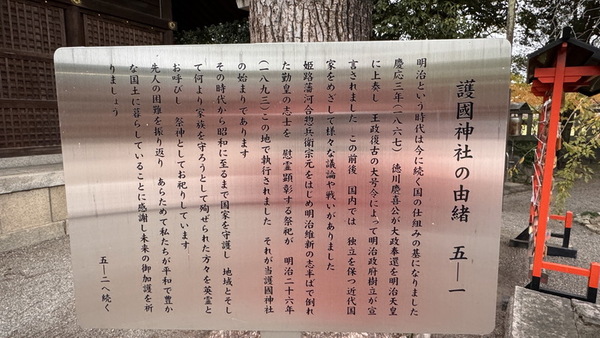 護國神社の由緒　五―一
明治という時代は今に続く国の仕組みの基になりました
慶応三年(一八六七)　徳川慶喜公が大政奉還を明治天皇
に上奏し　王政復古の大号令によって明治政府樹立が宣
言されました　この前後　国内では　独立を保つ近代国
家をめざして様々な議論や戦いがありました
姫路藩河合惣兵衛宗元をはじめ明治維新の志半ばで倒れ
た勤皇の志士を　慰霊顕彰する祭祀が　明治二十六年
(一八九三)この地で執行されました　それが当護國神社
の始まりであります
その時代から昭和に至るまで国家を守護し　地域とそし
て何より家族を守ろうとして殉ぜられた方々を英霊と
お呼びし　祭神としてお祀りしています
先人の困難を振り返り　あらためて私たちが平和で豊か
な国土に暮らしていることに感謝し未来の御加護を祈
りましょう
五―二へ続く